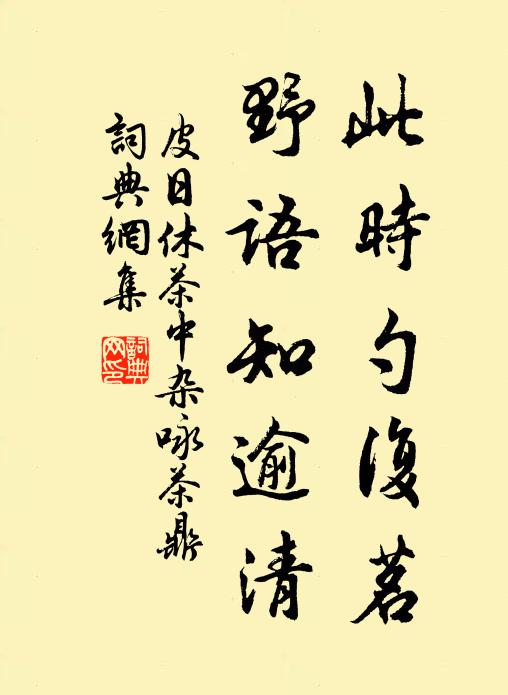 此時勺復茗
野語知逾清
皮日休茶中杂咏茶鼎
詞典網集
詞典
网印